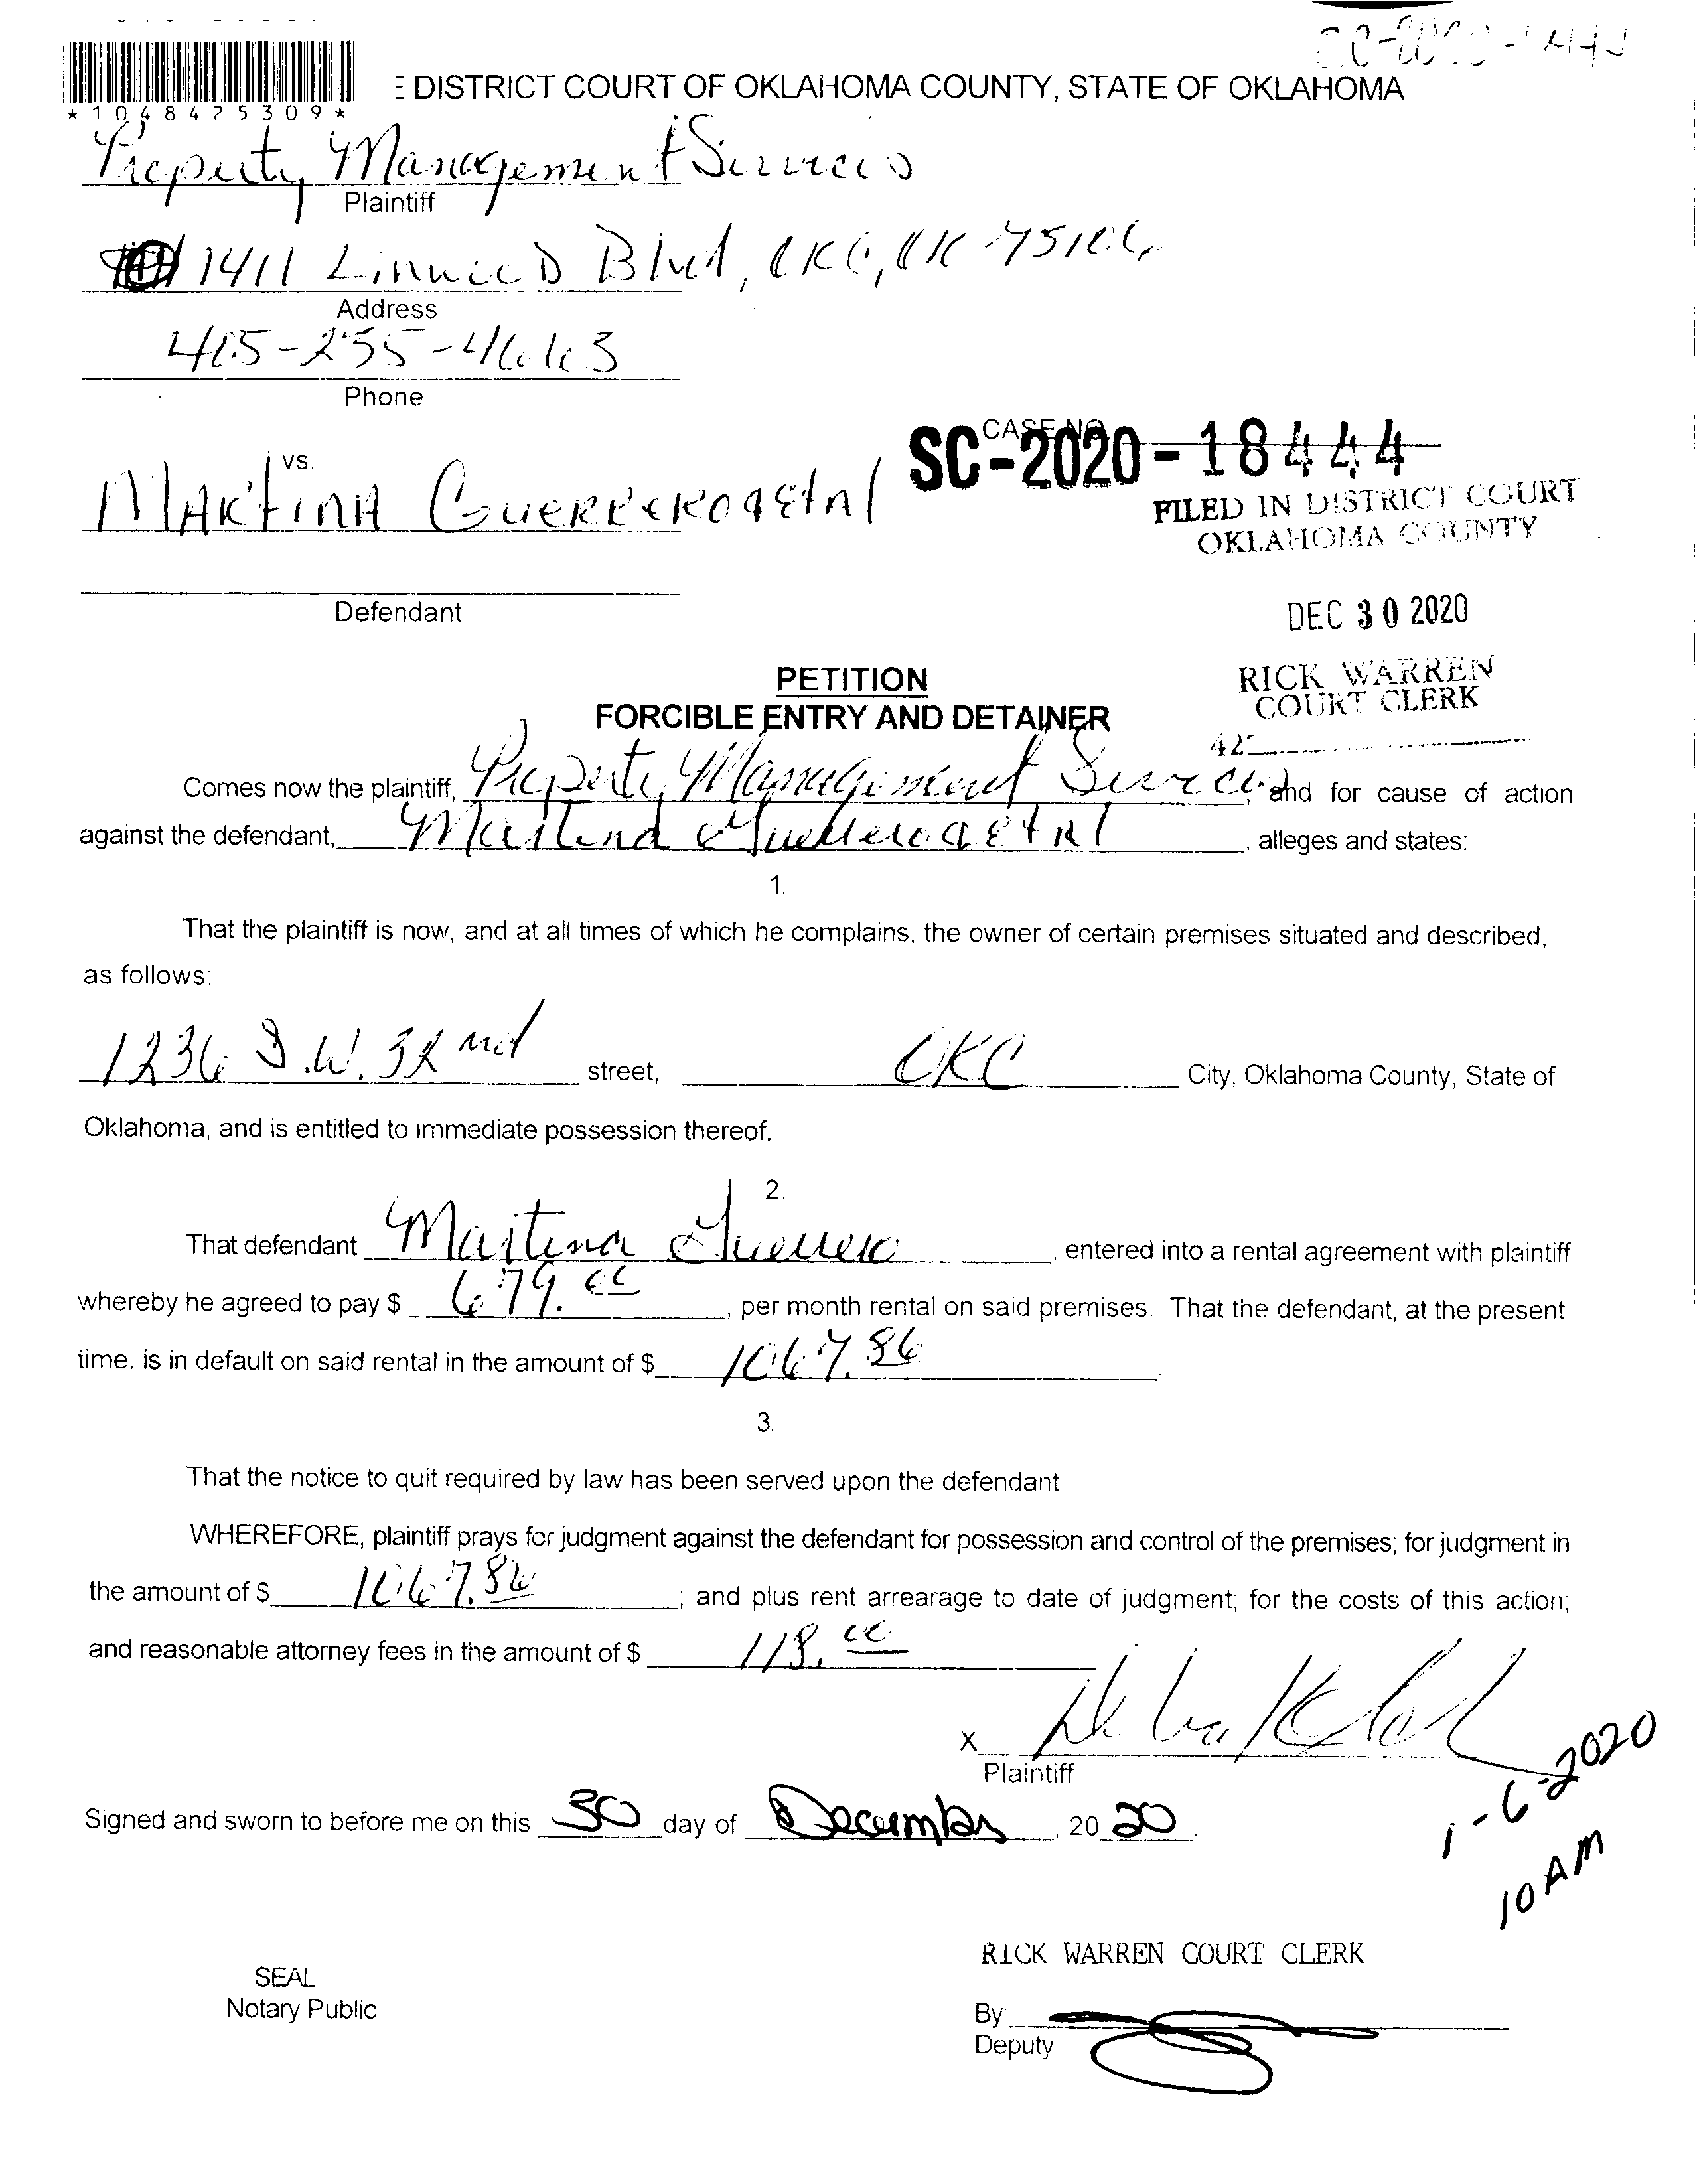 DISTRICT COURT OF OKLAHOMA COUNTY, STATE OF OKLAHOMA
*1048425309*
Property Management Services
Plaintiff
1411 Linwood Blvd, OKC, OK 73106
Address
405-235-4663
Phone
CASE NO.
SC-2020-18444
vs.
MARTINA GUERREROAEtAl
FILED IN DISTRICT COURT
OKLAHOMA COUNTY
Defendant
DEC 30 2020
PETITION
RICK WARREN
COURT CLERK
FORCIBLE ENTRY AND DETAINER
42
Comes now the plaintiff, Property Management Services, and for cause of action
against the defendant, Martina GuerreroaEtAl, alleges and states:
1.
That the plaintiff is now, and at all times of which he complains, the owner of certain premises situated and described,
as follows:
1236 S.W. 32nd street, OKC City, Oklahoma County, State of
Oklahoma, and is entitled to immediate possession thereof.
2.
That defendant Martina Guerrero, entered into a rental agreement with plaintiff
whereby he agreed to pay $ 679.00, per month rental on said premises. That the defendant, at the present
time, is in default on said rental in the amount of $ 1067.86.
3.
That the notice to quit required by law has been served upon the defendant.
WHEREFORE, plaintiff prays for judgment against the defendant for possession and control of the premises; for judgment in
the amount of $ 1067.86; and plus rent arrearage to date of judgment; for the costs of this action;
and reasonable attorney fees in the amount of $ 118.00
X
Plaintiff
1-6-2020
10 AM
Signed and sworn to before me on this 30 day of December, 2020.
RICK WARREN COURT CLERK
SEAL
Notary Public
By
Deputy